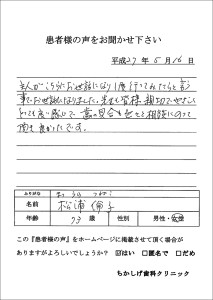 患者様の声をお聞かせ下さい
平成27年5月16日
主人がこちらでお世話になり1度行ってみたらと言う
事でお世話になりました。先生も皆様親切でやさしく
とても良い感じで、歯の具合も色々と相談にのって
頂き良かったです。
ふりがな
名前
松浦 倫子
年齢 73歳 性別 男性・女性
この『患者様の声』をホームページに掲載させて頂く場合が
ありますがよろしいでしょうか? ☑はい □匿名で □だめ
ちかしげ歯科クリニック